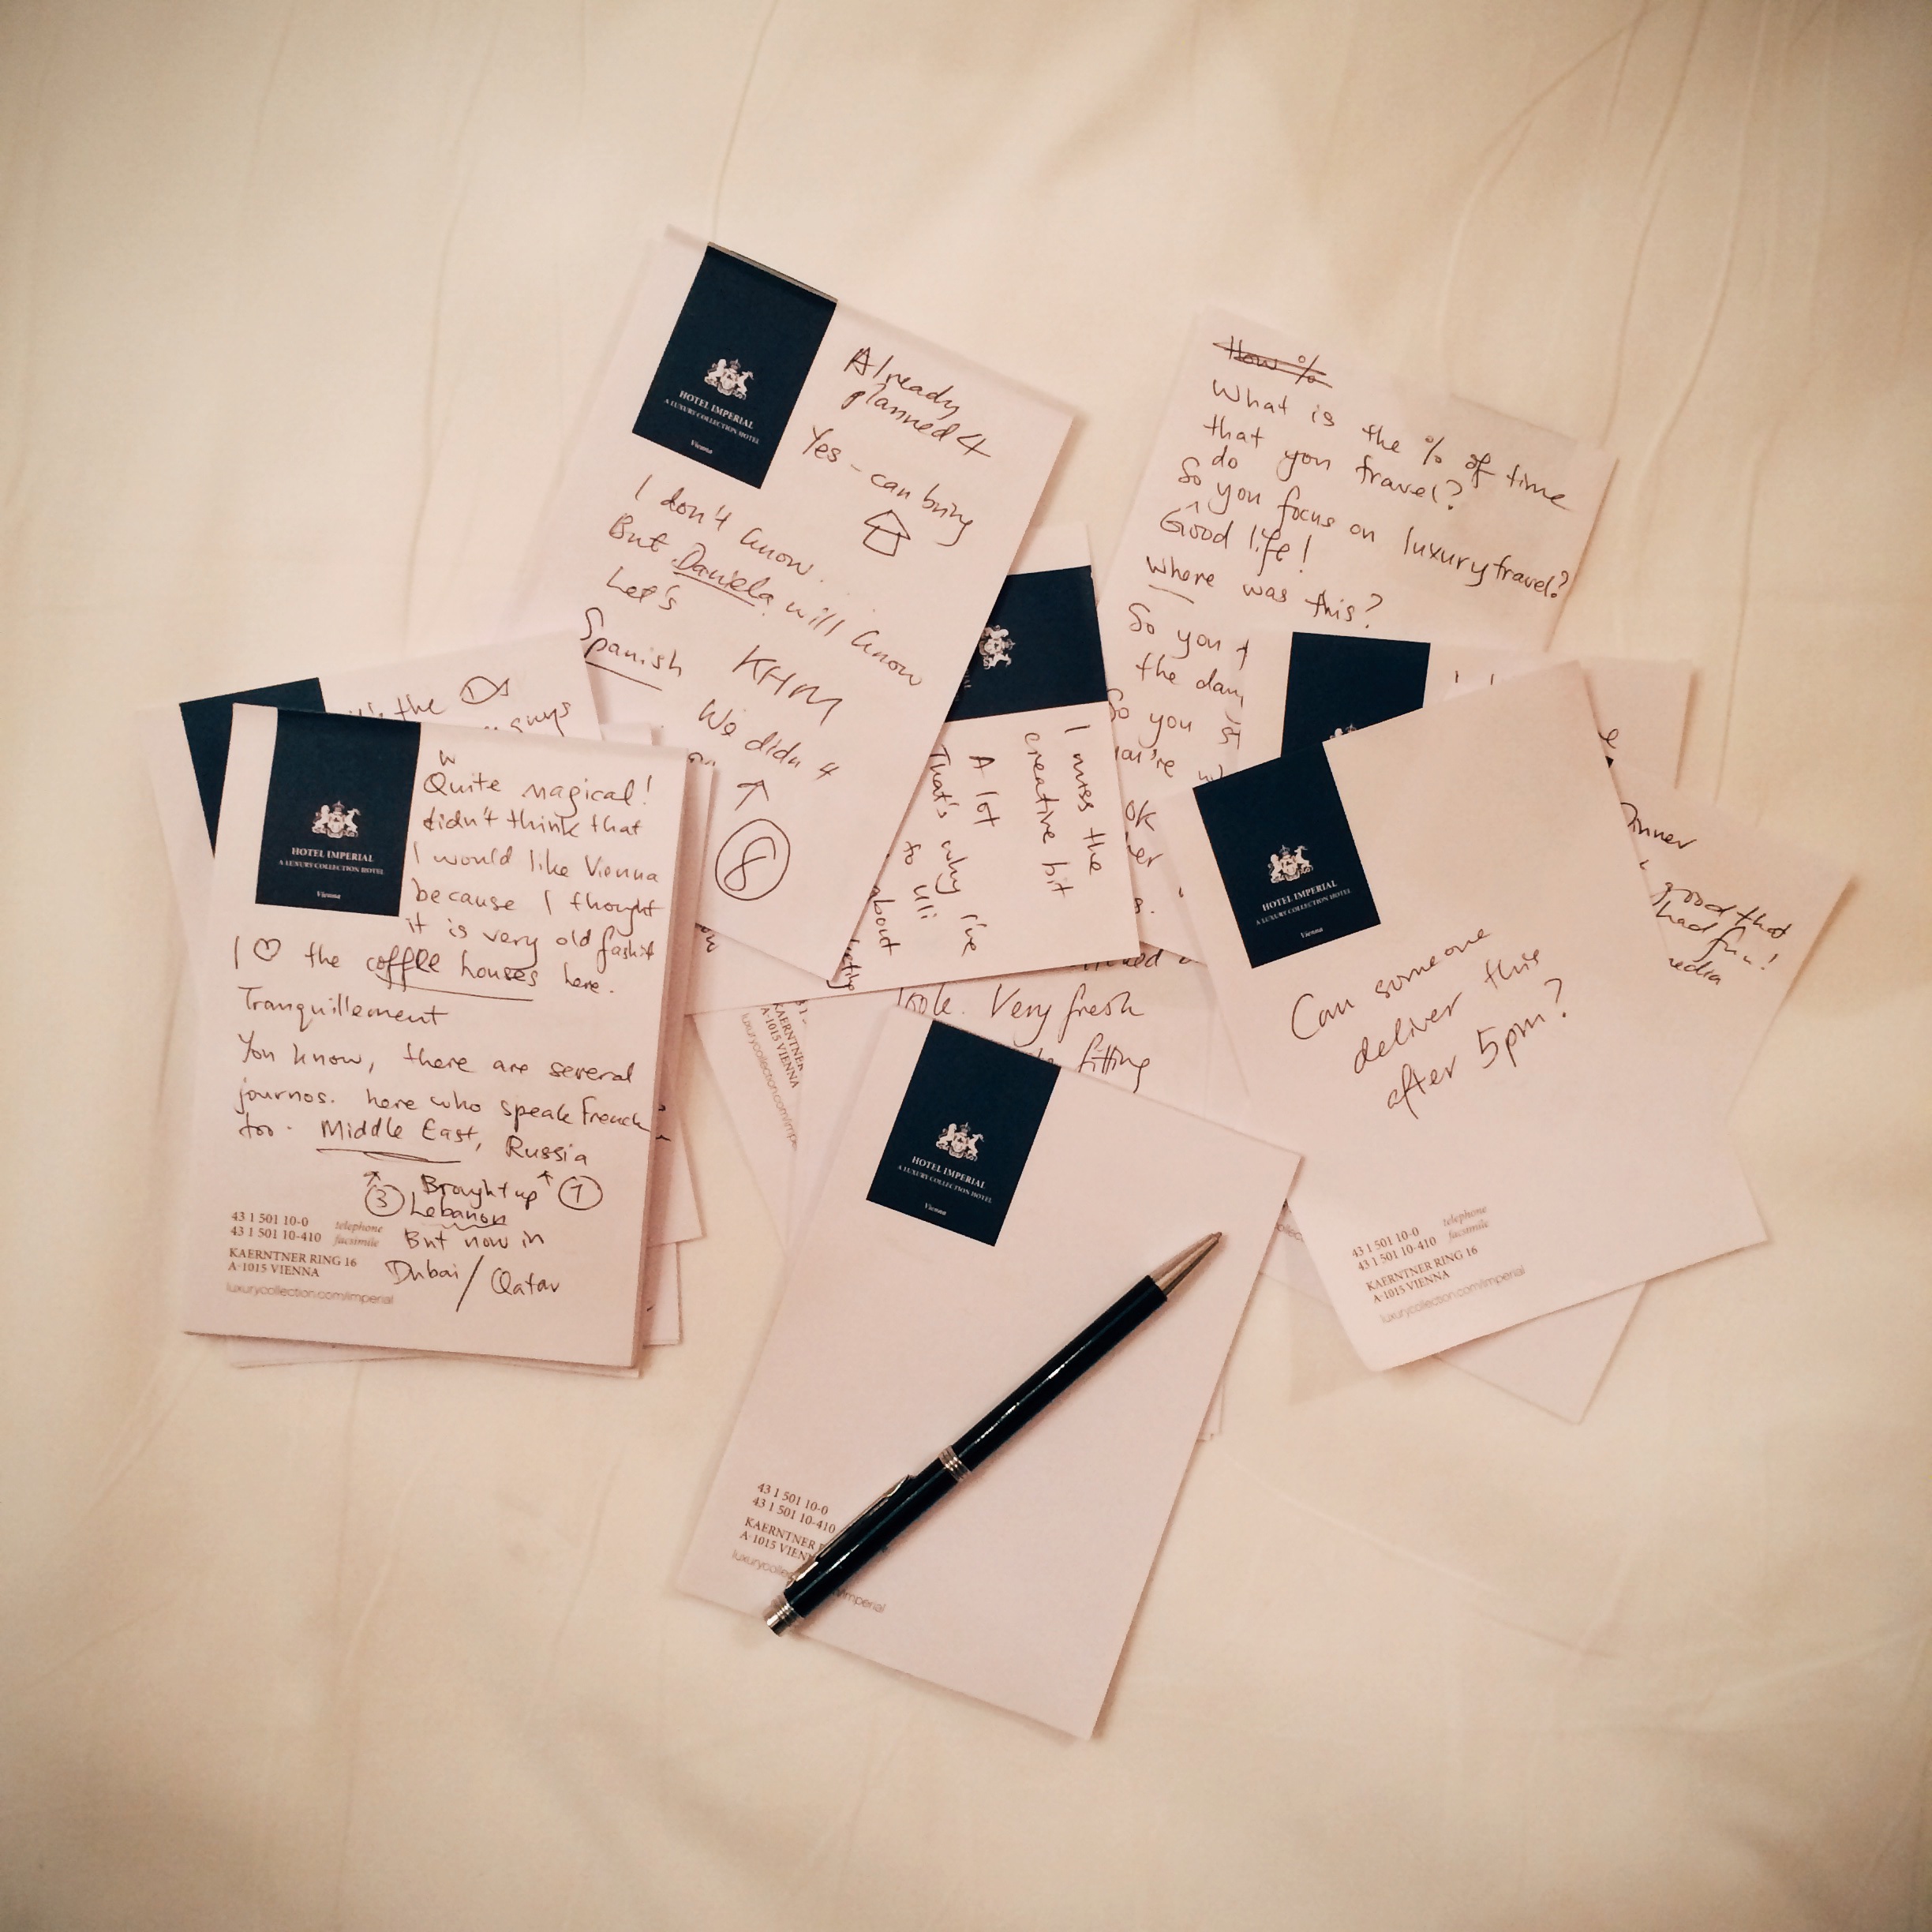 HOTEL IMPERIAL
A LUXURY COLLECTION HOTEL
Vienna
Already
planned 4
Yes - can bring
I don't know.
But Daniela will know
Let's
Spanish
KHM
We didn't
8
How %
What is the % of time
that you travel?
do
So you focus on luxury travel?
Good life!
Where was this?
So you
the
So you
OK
I miss the
creative bit
A lot
That's why I've
so
about
the
guys
HOTEL IMPERIAL
A LUXURY COLLECTION HOTEL
Vienna
Quite magical!
didn't think that
I would like Vienna
because I thought
it is very old
I ♡ the coffee houses here.
Tranquillement
You know, there are several
journos. here who speak French
too. Middle East, Russia
3 Brought up 7
Lebanon
But now in
Dubai / Qatar
43 1 501 10-0 telephone
43 1 501 10-410 facsimile
KAERNTNER RING 16
A-1015 VIENNA
luxurycollection.com/imperial
Very fresh
fitting
KAERNTNER
A-1015 VIENNA
luxurycollection.com/impe
HOTEL IMPERIAL
A LUXURY COLLECTION HOTEL
Vienna
43 1 501 10-0
43 1 501 10-410
KAERNTNER
A-1015 VIENN
luxurycollec
imperial
HOTEL IMPERIAL
A LUXURY COLLECTION HOTEL
Vienna
Can someone
deliver this
after 5pm?
43 1 501 10-0 telephone
43 1 501 10-410 facsimile
KAERNTNER RING 16
A-1015 VIENNA
luxurycollection.com/imperial
good that
had fun!